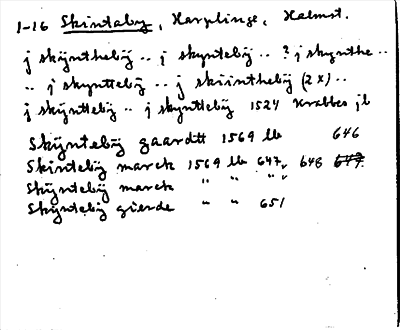 1-16 Skintaby, Harplinge, Halmst.
j skÿnthebÿ .. j skyntebÿ .. ? j skynthe ..
.. j skynttebÿ .. j skiinthebÿ (2x) ..
j skÿnttebÿ .. j skynttebÿ 1524 Krabbes jb
Skÿntebÿ gaardtt 1569 lb 646
Skintebÿ marck 1569 lb 647, 648 649
Skÿntebÿ marck " " "
Skÿntebÿ gierde " " 651